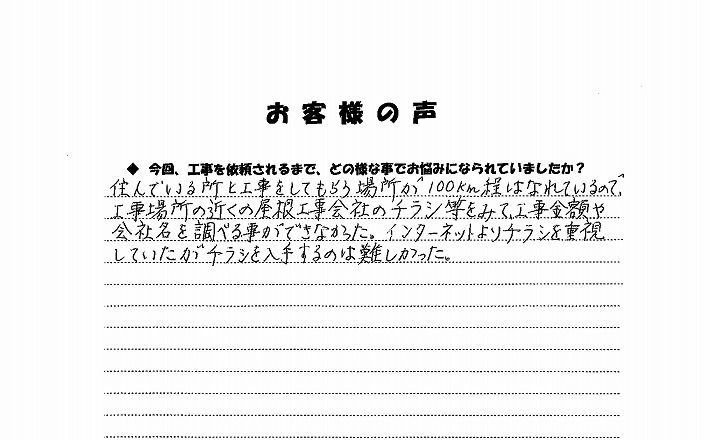 お客様の声
◆ 今回、工事を依頼されるまで、どの様な事でお悩みになられていましたか？
住んでいる所と工事をしてもらう場所が100km程はなれているので、
工事場所の近くの屋根工事会社のチラシ等をみて、工事金額や
会社名を調べる事ができなかった。インターネットよりチラシを重視
していたがチラシを入手するのは難しかった。